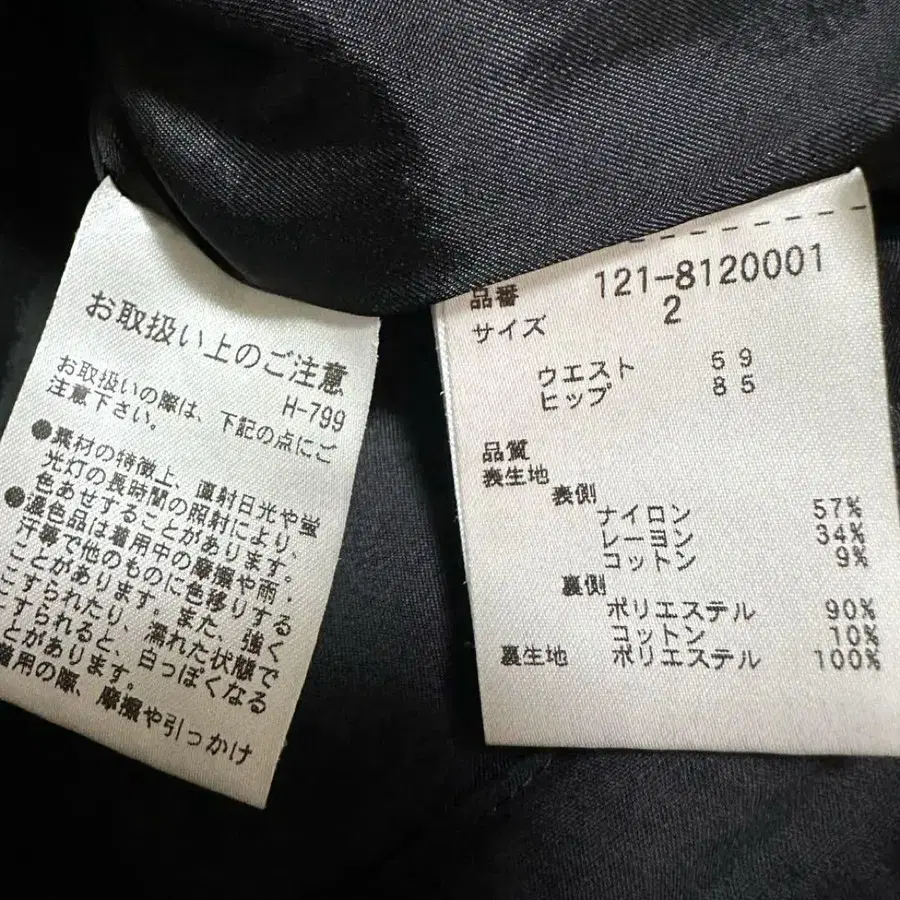 お取扱い上のご注意
H-799
お取扱いの際は、下記の点にご
注意下さい。
●素材の特徴上、直射日光や蛍
光灯の長時間の照射により、
色あせすることがあります。
●濃色品は着用中の摩擦や雨・
汗等で他のものに色移りする
ことがあります。また、強く
こすられたり、濡れた状態で
こすられると、白っぽくなる
とがあります。
着用の際、摩擦や引っかけ
品番 121-8120001
サイズ 2
ウエスト 59
ヒップ 85
品質
表生地
表側
ナイロン 57%
レーヨン 34%
コットン 9%
裏側
ポリエステル 90%
コットン 10%
裏生地 ポリエステル 100%